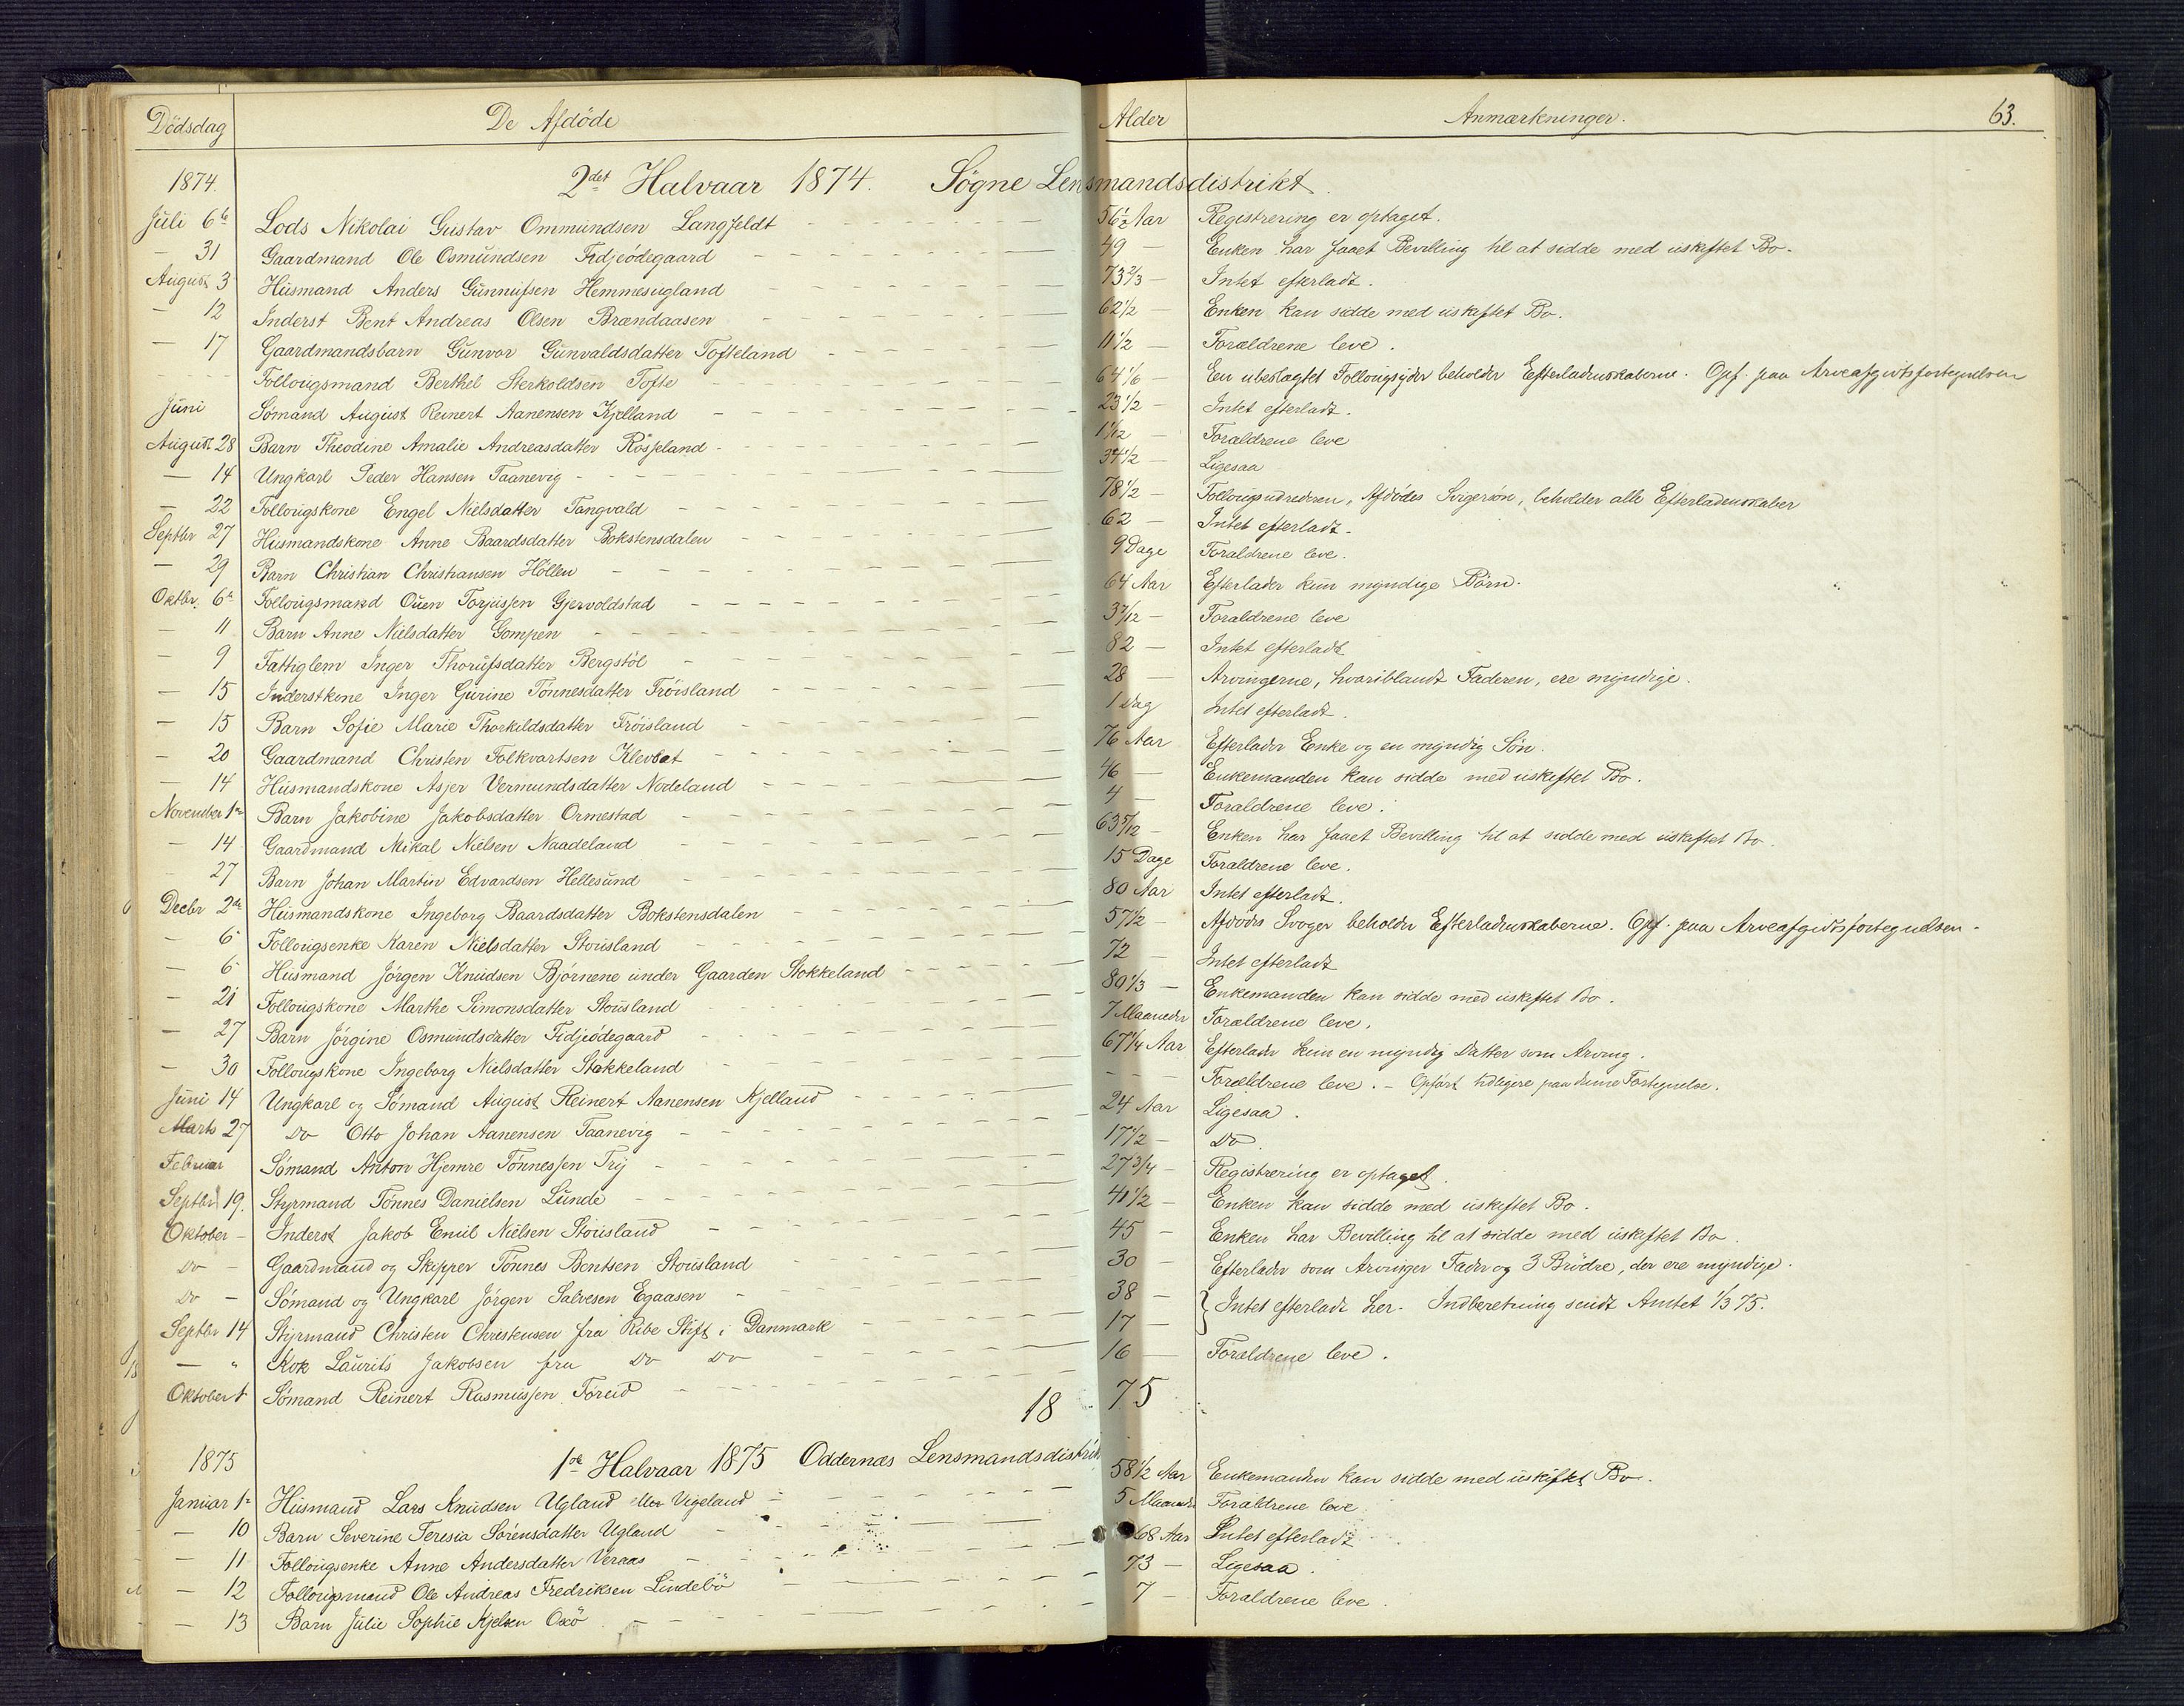 Dödsdag De Afdöde Alder Anmærkninger. 63.
1874. 2det Halvaar 1874. Sögne Lensmandsdistrikt.
Juli 6te Lods Nikolai Gustav Ommundsen Langfeldt 56½ Aar Registrering er optaget.
— 31 Gaardmand Ole Osmundsen Fidjeödegaard 49 — Enken har faaet Bevilling til at sidde med uskiftet Bo.
August 3 Husmand Anders Gunnufsen Hemmesugland 73 2/3 — Intet efterladt.
— 12 Inderst Bent Andreas Olsen Brændaasen 62 1/2 — Enken kan sidde med uskiftet Bo.
— 17 Gaardmandsbarn Gunvor Gunvaldsdatter Tofteland 11 1/2 — Forældrene leve.
- - - Follougsmand Berthel Sterkoldsen Tofte 64 1/6 — En ubeslægtet Follougsyder beholder Efterladenskaberne. Opf. paa Arveafgivtsfortegnelsen
Juni Sömand August Reinert Aanensen Kjelland 23 1/2 — Intet efterladt.
August 28 Barn Theodine Amalie Andreasdatter Rösseland 1 1/12 — Forældrene leve
— 14 Ungkarl Peder Hansen Taanevig 34 1/2 — Ligesaa
— 22 Follougskone Engel Nielsdatter Tangvald 78 1/2 — Follougsudrederen, Afdödes Svigersön, beholder alle Efterladenskaber
Septbr 27 Husmandskone Anne Baardsdatter Bokstensdalen 62 — Intet efterladt.
— 29 Barn Christian Christiansen Höllen 9 Dage Forældrene leve.
Oktbr. 6te Follougsmand Ouen Torjussen Gjervoldstad 64 Aar Efterlader kun myndige Börn.
— 11 Barn Anne Nielsdatter Gompen 3 7/12 — Forældrene leve
— 9 Fattiglem Inger Thorufsdatter Bergstöl 82 — Intet efterladt
— 15 Inderstkone Inger Gurine Tönnesdatter Tröisland 28 — Arvingerne, hvoriblandt Faderen, ere myndige.
— 15 Barn Sofie Marie Thorkildsdatter Tröisland 1 Dag Intet efterladt.
— 20 Gaardmand Christen Folkvartsen Klevset 76 Aar Efterlader Enke og en myndig Sön.
— 14 Husmandskone Asjer Vermundsdatter Nodeland 46 — Enkemanden kan sidde med uskiftet Bo.
November 1te Barn Jakobine Jakobsdatter Ormestad 4 — Forældrene leve.
— 14 Gaardmand Mikal Nielsen Naadeland 63 5/12 — Enken har faaet Bevilling til at sidde med uskiftet Bo.
27 Barn Johan Martin Edvardsen Hellesund 15 Dage Forældrene leve.
Decbr 2de Husmandskone Ingeborg Baardsdatter Bokstensdalen 80 Aar Intet efterladt.
— 6 Follougsenke Karen Nielsdatter Stousland 57 1/2 — Afdödes Svoger beholder Efterladenskaberne. Opf. paa Arveafgivtsfortegnelsen.
— 6 Husmand Jörgen Knudsen Björnene under Gaarden Stokkeland 72 — Intet efterladt
— 21 Follougskone Marthe Simonsdatter Stousland 80 1/3 — Enkemanden kan sidde med uskiftet Bo.
— 27 Barn Jörgine Osmundsdatter Fidjeödegaard 7 Maaneder Forældrene leve.
— 30 Follougskone Ingeborg Nielsdatter Stokkeland 67 1/4 Aar Efterlader kun en myndig Datter som Arving.
Juni 14 Ungkarl og Sömand August Reinert Aanensen Kjelland - - - Forældrene leve. - Opfört tidligere paa denne Fortegnelse.
Marts 27 Do Otto Johan Aanensen Taanevig 24 Aar Ligesaa.
Februar Sömand Anton Hjemre Tönnessen Try 17 1/2 — Do
Septbr 19. Styrmand Tönnes Danielsen Lunde 27 3/4 — Registrering er optaget.
Oktober - Inderst Jakob Emil Nielsen Stousland 41 1/2 — Enken kan sidde med uskiftet Bo.
Do - Gaardmand og Skipper Tönnes Bentsen Stousland 45 — Enken har Bevilling til at sidde med uskiftet Bo.
Do - Sömand og Ungkarl Jörgen Salvesen Egaasen 30 — Efterlader som Arvinger Fader og 3 Brödre, der ere myndige.
Septbr 14 Styrmand Christen Christensen fra Ribe Stift i Danmark 38 — } Intet efterladt her. Indberetning sendt Amtet 1/3 75.
— " Kok Laurits Jakobsen fra Do Do 17 —
Oktober 1 Sömand Reinert Rasmussen Föreid 16 — Forældrene leve.
18 75
1875 1ste Halvaar 1875 Oddernæs Lensmandsdistrikt
Januar 1te Husmand Lars Knudsen Ugland eller Vigeland 58 1/2 Aar Enkemanden kan sidde med uskiftet Bo.
— 10 Barn Severine Teresia Sörensdatter Ugland 5 Maaneder Forældrene leve.
— 11 Follougsenke Anne Andersdatter Veraas 68 Aar Intet efterladt
— 12 Follougsmand Ole Andreas Fredriksen Lindebö 73 — Ligesaa.
— 13 Barn Julie Sophie Kjelsen Oxö 7 — Forældrene leve.